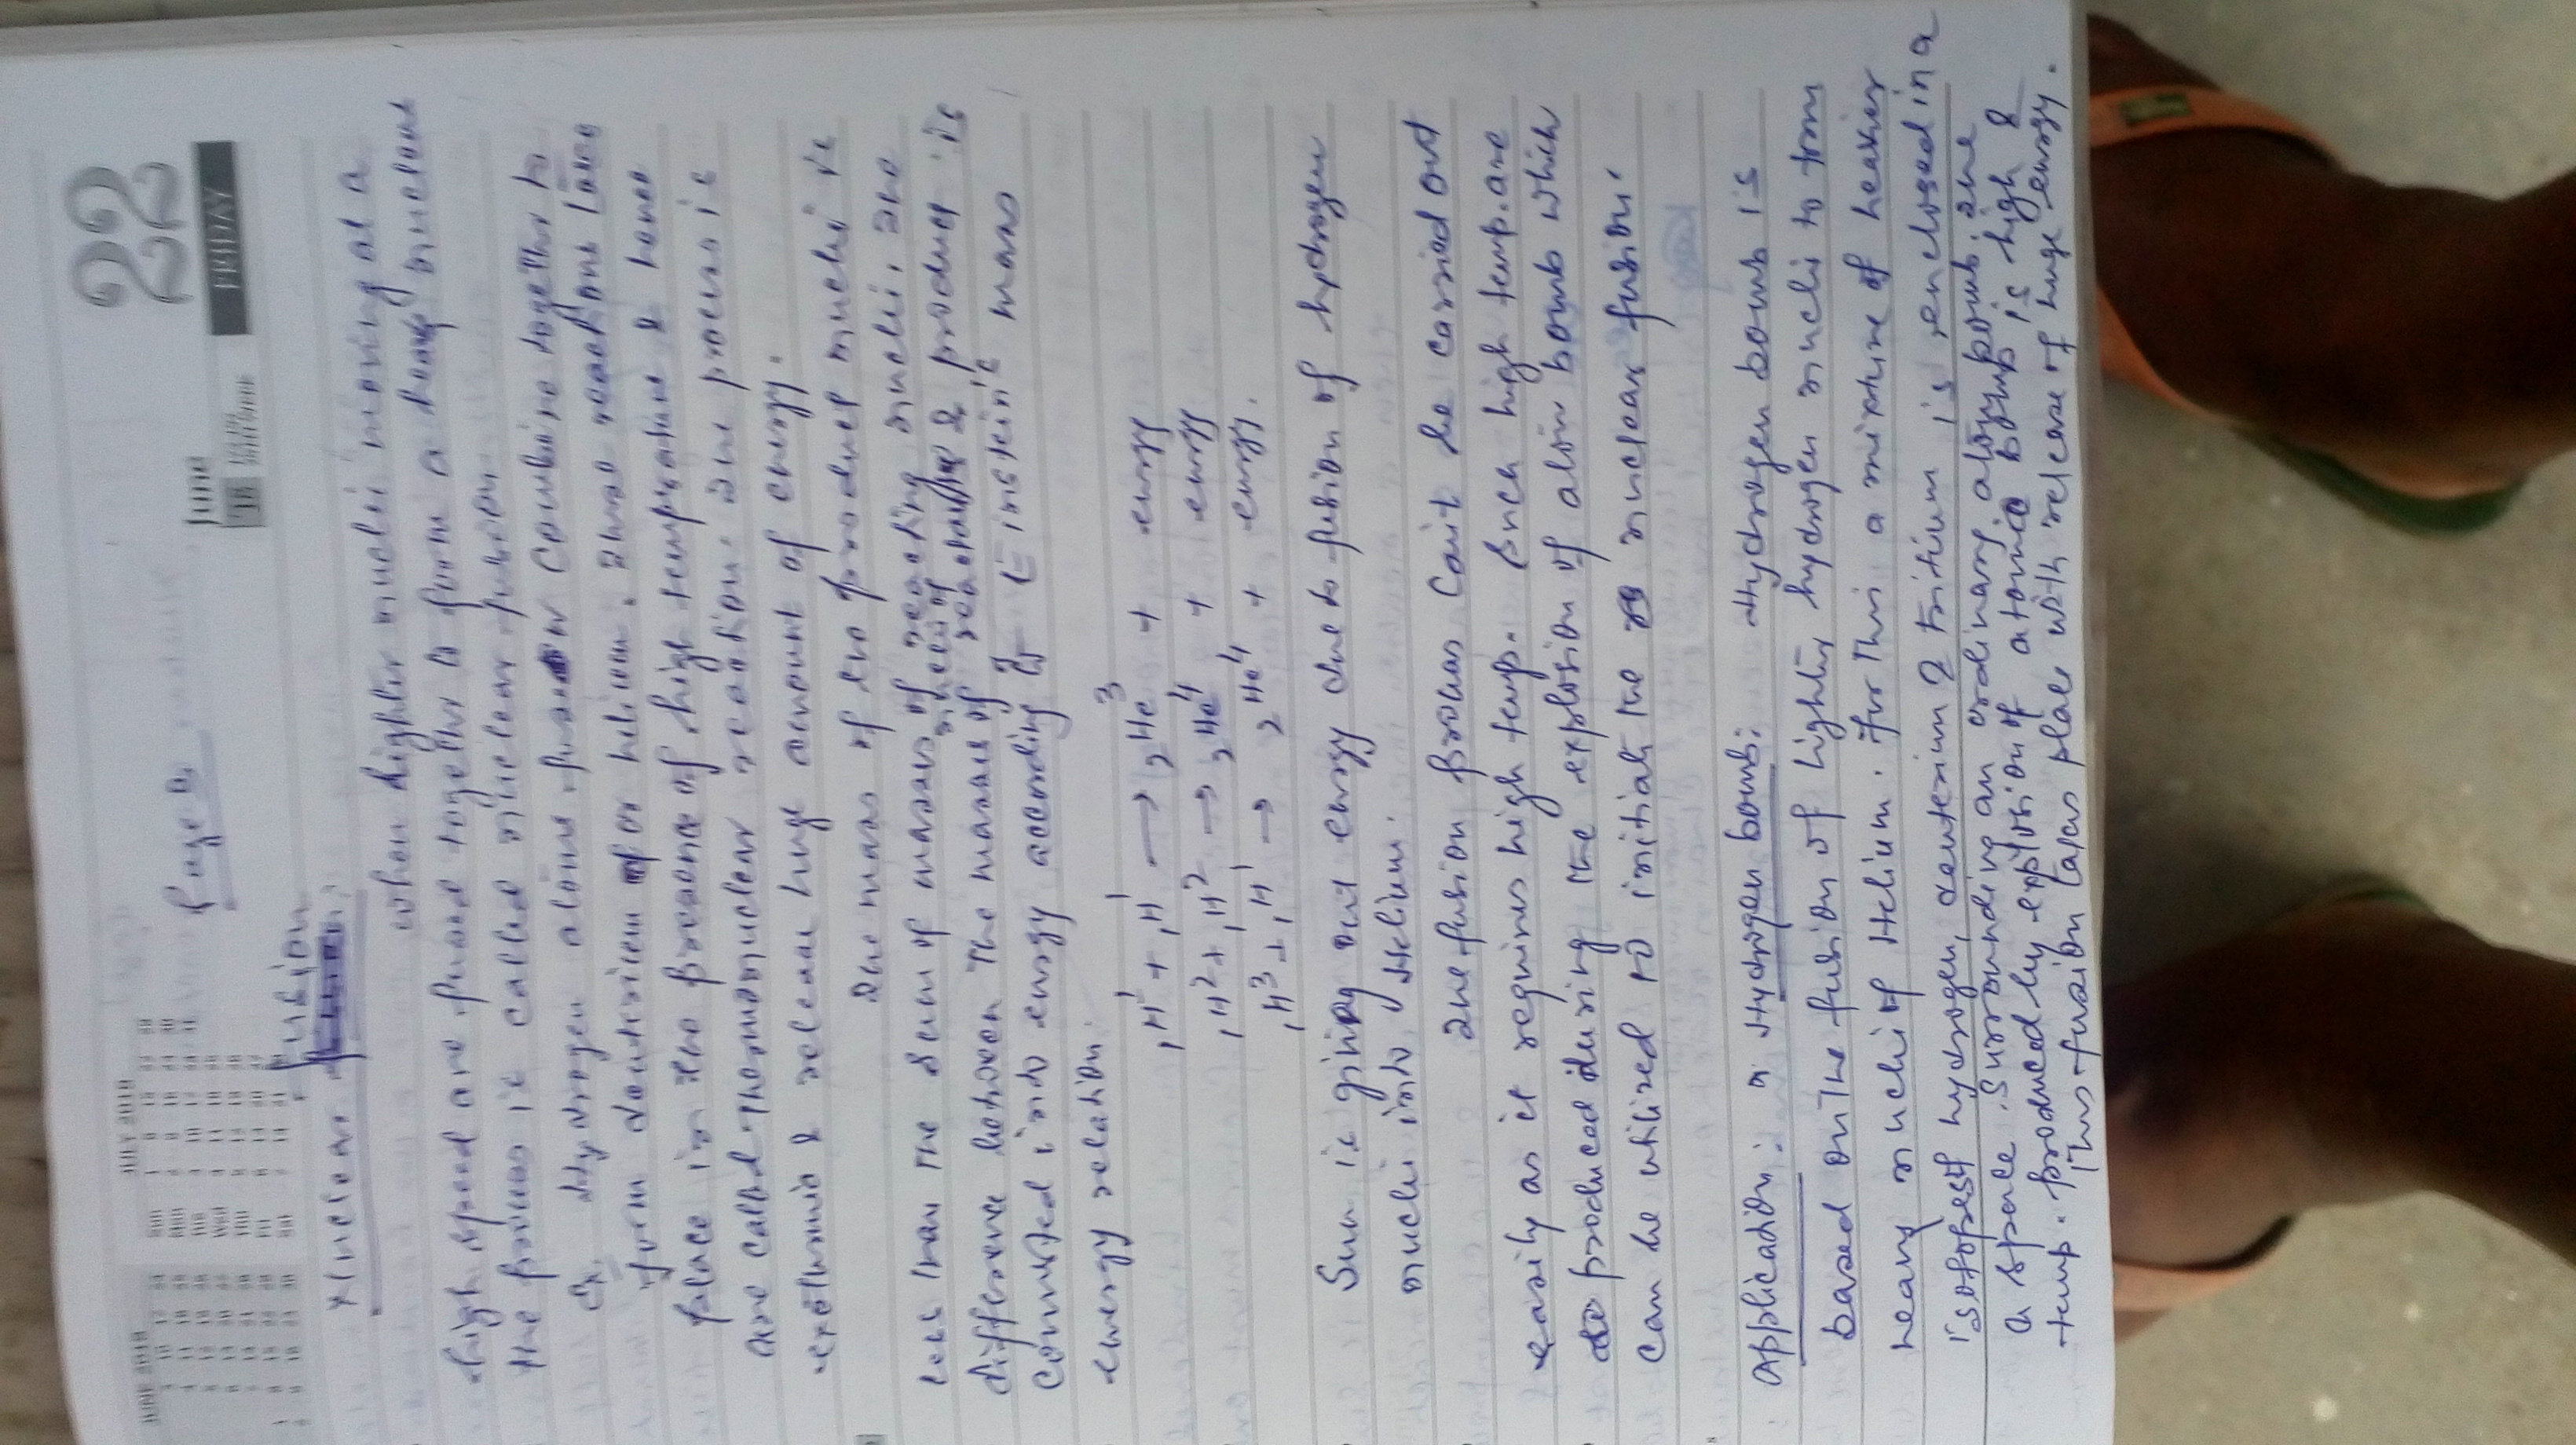 22
June
FRIDAY
JUNE 2018
JULY 2018
Page
Nuclear fusion
when lighter nuclei moving at a
high speed are fused together to form a heavy nucleus
the process is called nuclear fusion
Ex. Hydrogen atoms fuse or combine together to
form deuterium or helium. These reactions takes
place in the presence of high temperature & hence
are called thermonuclear reaction. The process is
exothermic & release huge amount of energy.
The mass of the product nuclei is
less than the sum of masses of reacting nuclei. The
difference between the masses of reactants & product is
converted into energy according to Einstein's mass
energy relation.
₁H¹ + ₁H¹ → ₂He³ + energy
₁H² + ₁H² → ₂He⁴ + energy
₁H³ + ₁H¹ → ₂He⁴ + energy.
Sun is giving out energy due to fusion of hydrogen
nuclei into Helium.
The fusion process can't be carried out
easily as it requires high temp. Such high temp. are
produced during the explosion of atom bomb which
can be utilized to initiate the nuclear fusion.
Application: Hydrogen bomb: Hydrogen bomb is
based on the fusion of lighter hydrogen nuclei to form
heavy nuclei of Helium. for this a mixture of heavier
isotopes of hydrogen, deuterium & tritium is enclosed in a
a space surrounding an ordinary atom bomb. The
temp. produced by explosion of atomic bomb is high &
thus fusion takes place with release of huge energy.